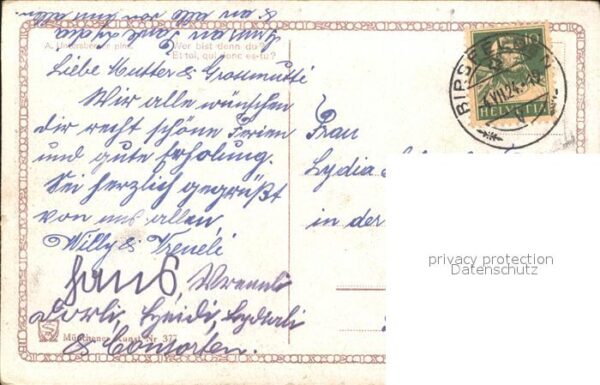 A. Untersberger pinx.
Wer bist denn du?
Et toi, qui donc es-tu?
Liebe Mutter & Grossmutti
Wir alle wünschen
dir recht schöne Ferien
und gute Erholung.
Sei herzlich gegrüßt
von uns allen,
Willy & Vreneli
Hans, Vreneli
Dorli, Heidi, Lydiali
& Consorten.
Münchener Kunst Nr 377
Frau
Lydia
in der
BIRSFELDEN
VII.24
HELVETIA
10
privacy protection
Datenschutz